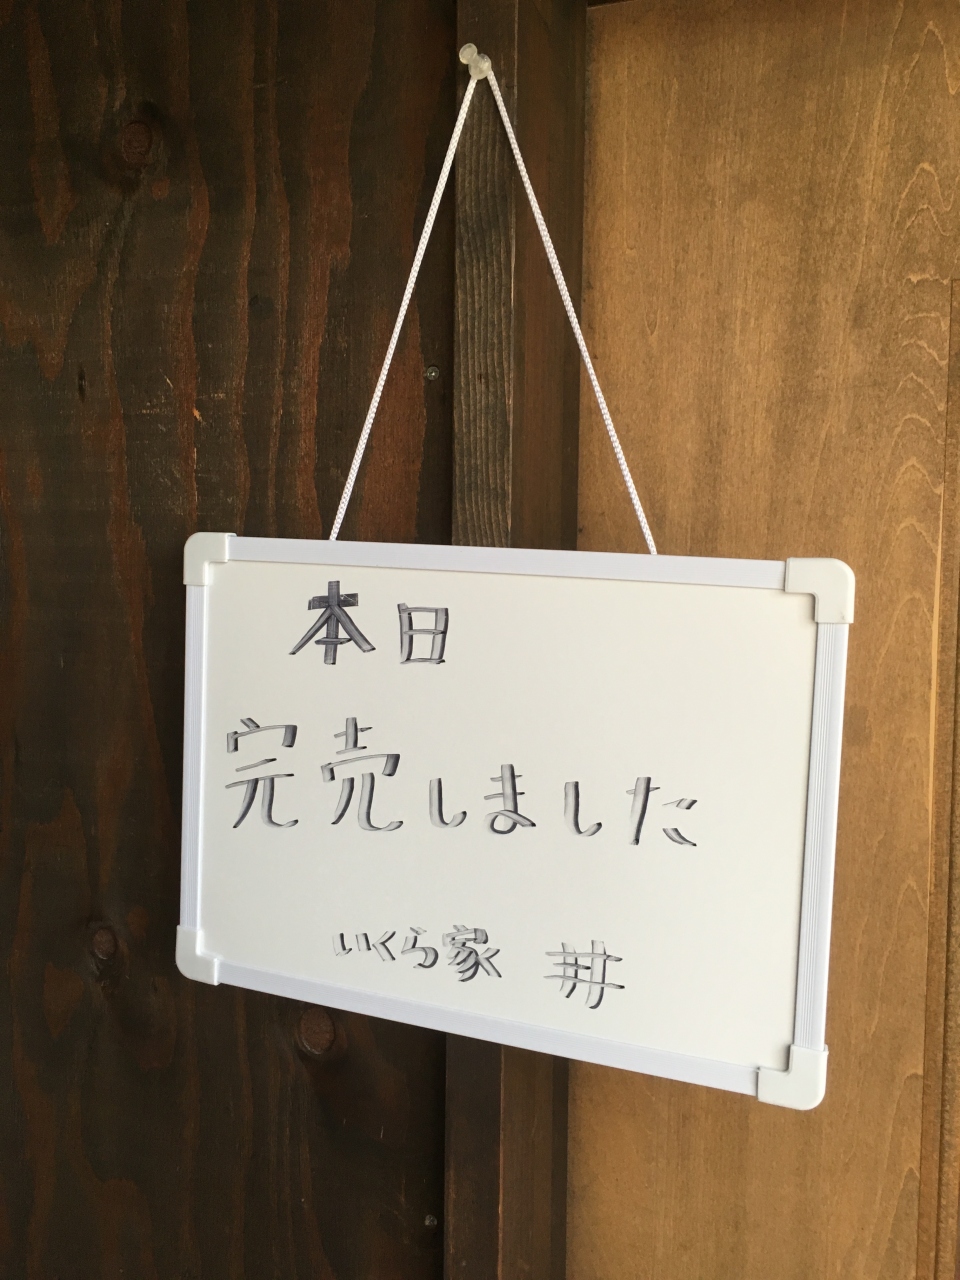 本日
完売しました
いくら家 井